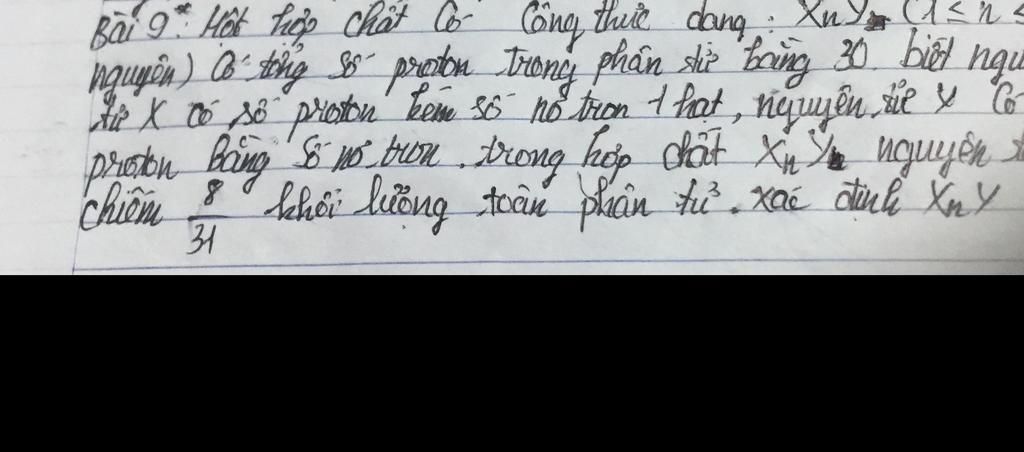 Bài 9*: Một hợp chất Có Công thức dạng: XnY (1 ≤ n ≤
nguyên) Có tổng số proton trong phân tử bằng 30. biết ngu
tử X có số proton kém số nơ tron 1 hạt, nguyên tử Y Có
proton Bằng Số nơ tron. trong hợp chất XnY nguyên t
chiếm 8/31 khối lượng toàn phân tử. xác định XnY